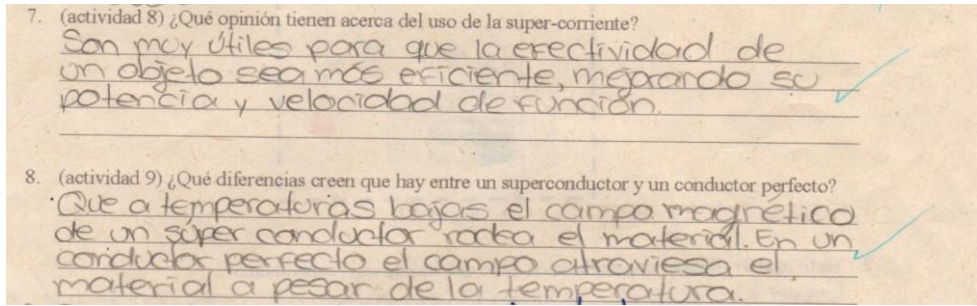 7. (actividad 8) ¿Qué opinión tienen acerca del uso de la super-corriente?
Son muy útiles para que la efectividad de
un objeto sea más eficiente, mejorando su
potencia y velocidad de función.
8. (actividad 9) ¿Qué diferencias creen que hay entre un superconductor y un conductor perfecto?
Que a temperaturas bajas el campo magnético
de un súper conductor rodea el material. En un
conductor perfecto el campo atraviesa el
material a pesar de la temperatura.